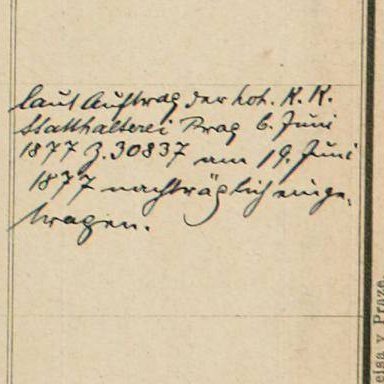 laut Auftrag der hoh. K. K.
Statthalterei Prag 6. Juni
1877 Z. 30837 am 19. Juni
1877 nachträglich einge-
tragen.
eisa v Praze.